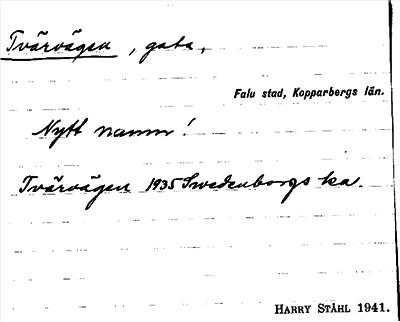 Tvärvägen, gata,
Falu stad, Kopparbergs län.
Nytt namn!
Tvärvägen 1935 Swedenborgs ka.
HARRY STÅHL 1941.